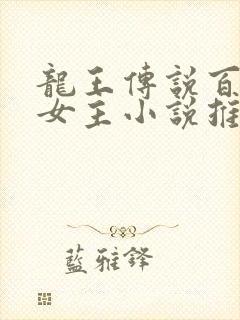 龍王傳說百
女主小說推
藍雅鋒